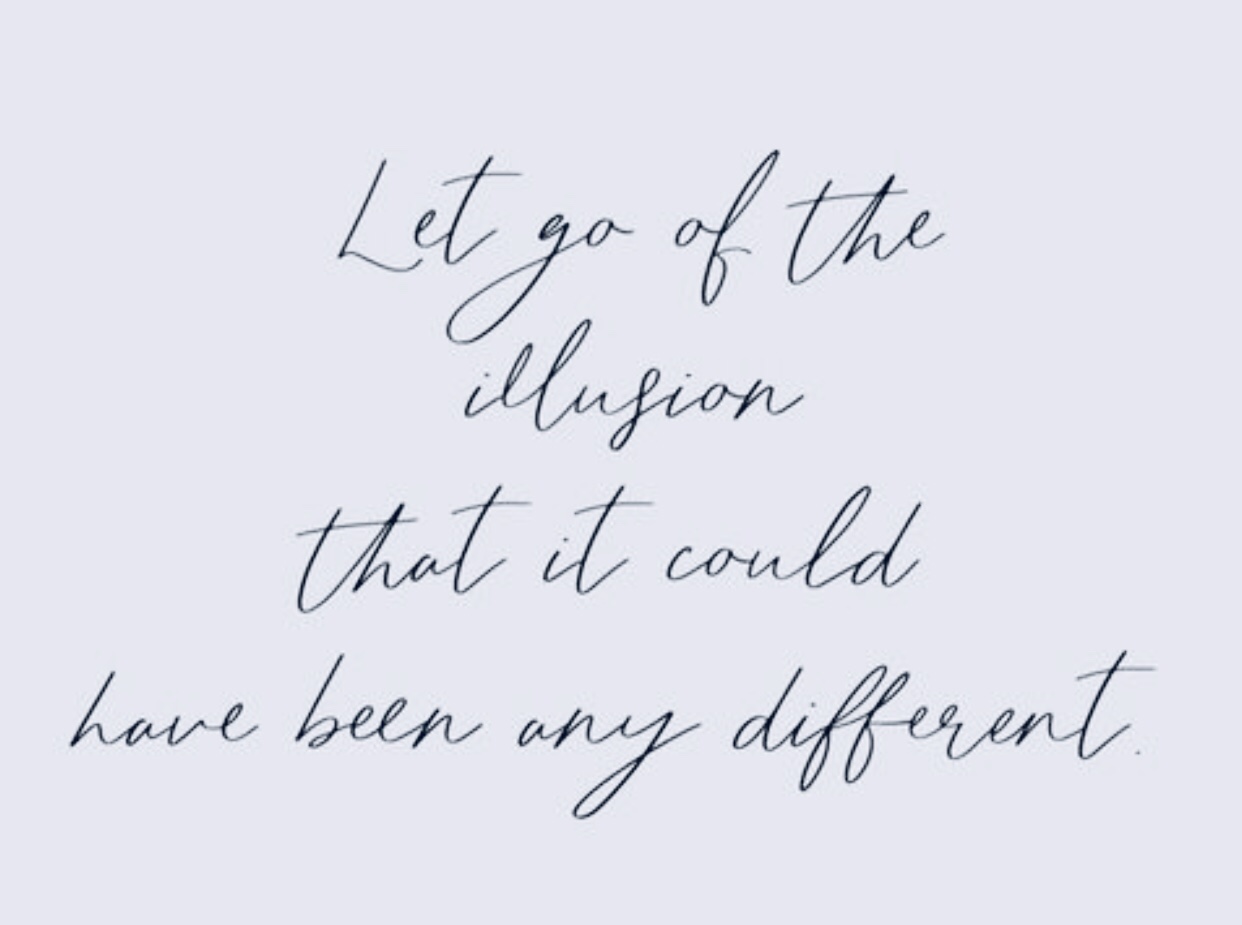 Let go of the
illusion
that it could
have been any different.